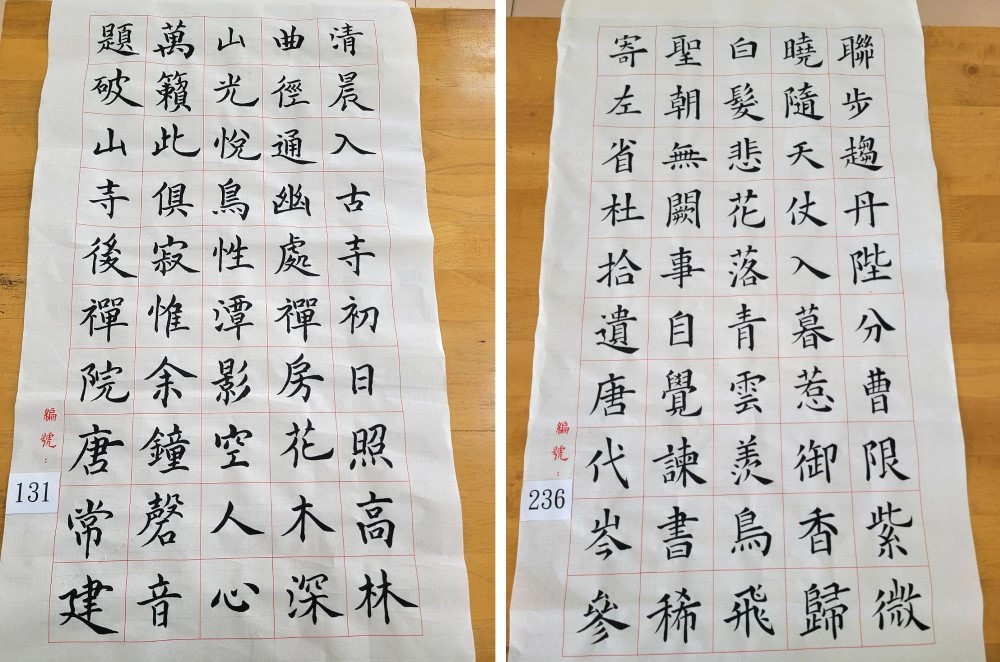 清晨入古寺初日照高林
曲徑通幽處禪房花木深
山光悅鳥性潭影空人心
萬籟此俱寂惟余鐘磬音
題破山寺後禪院唐常建
編號：
131
聯步趨丹陛分曹限紫微
曉隨天仗入暮惹御香歸
白髮悲花落青雲羨鳥飛
聖朝無闕事自覺諫書稀
寄左省杜拾遺唐代岑參
編號：
236